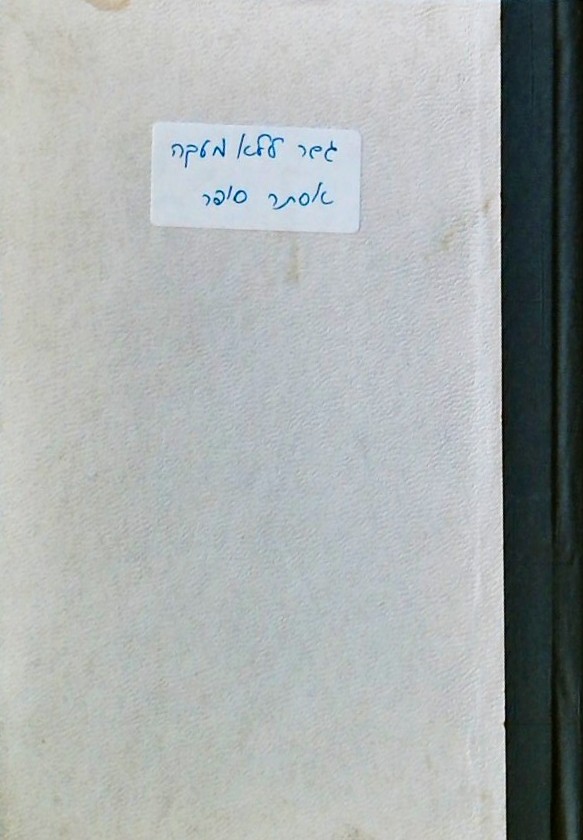 גשר ללא מעקה
אסתר סופר